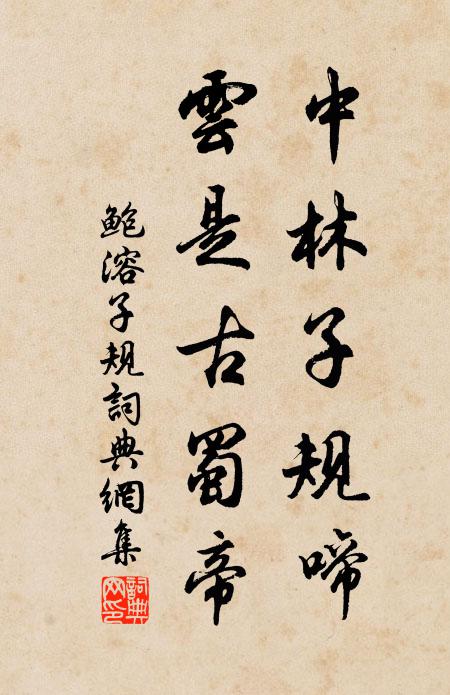 中林子規啼
雲是古蜀帝
鮑溶子規詞典網集
詞典網印